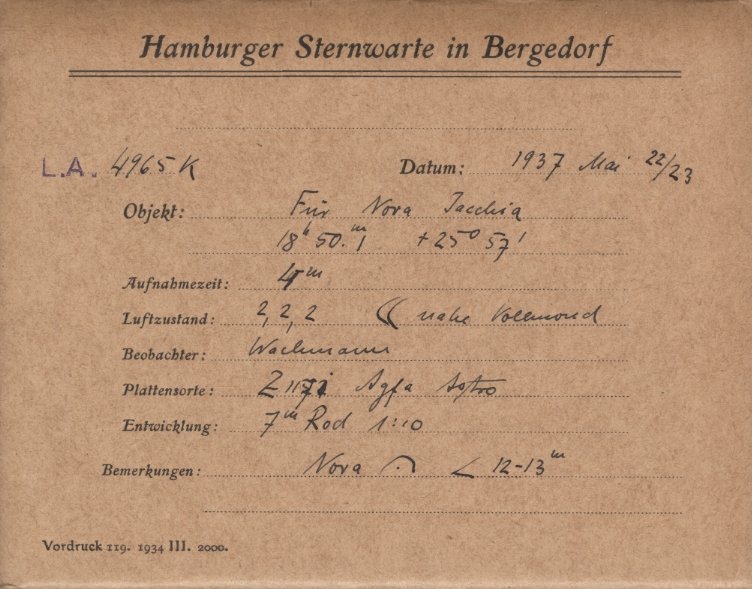 Hamburger Sternwarte in Bergedorf
L.A. 4965 K Datum: 1937 Mai 22/23
Objekt: Für Nova Jacchia
18h 50.m1 +25° 57'
Aufnahmezeit: 4m
Luftzustand: 2, 2, 2 ☾ nahe Vollmond
Beobachter: Wachmann
Plattensorte: Agfa Astro
Entwicklung: 7m Rod 1:10
Bemerkungen: Nova < 12-13m
Vordruck 119. 1934 III. 2000.